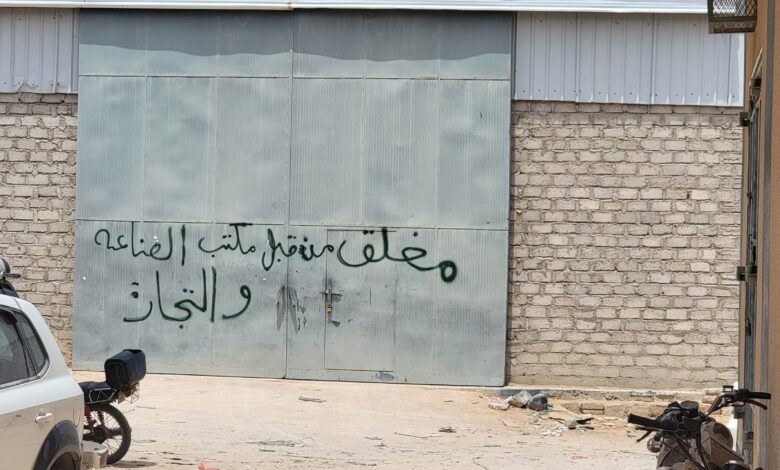 مغلق من قبل مكتب الصناعه
والتجارة